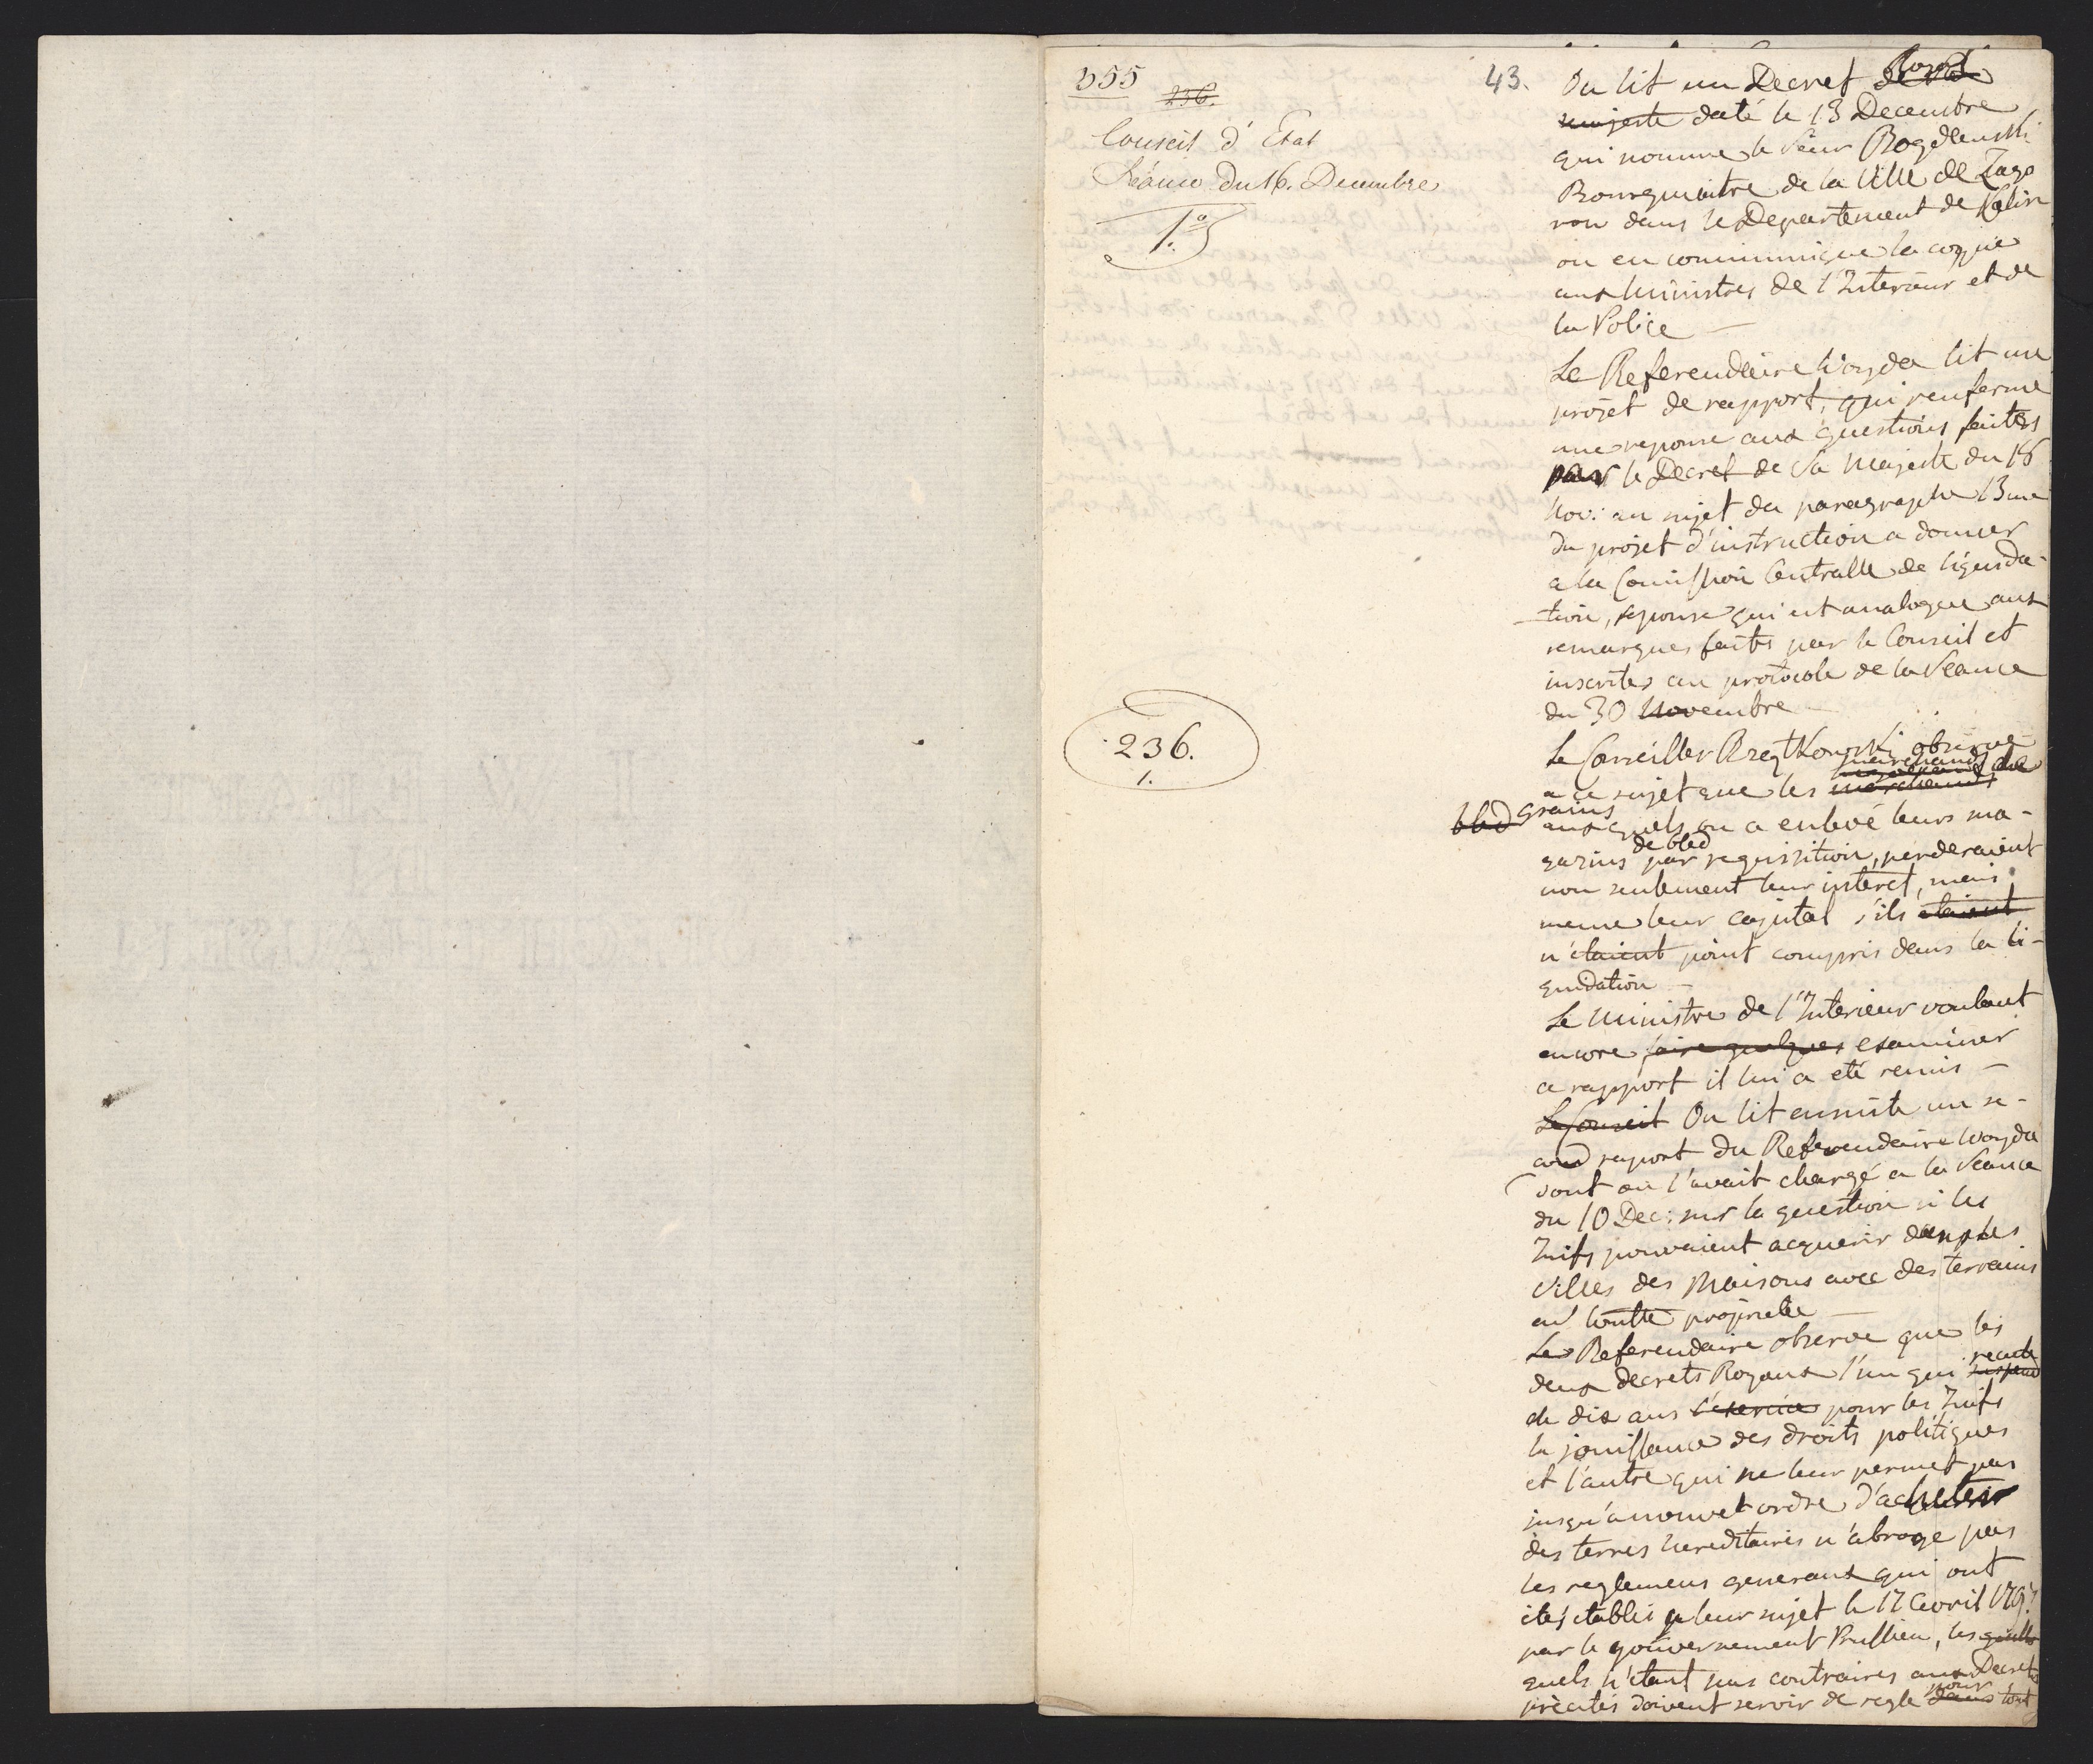 555
236.
Conseil d'Etat
Séance du 16. Decembre
1.º
236.
1.
43.
On lit un Decret de Sa Royal
majesté daté le 13 Decembre
qui nomme le Sieur
Bourguemtre de la Ville de Zago
row dans le Departement de Kalisz
on en communique la copie
aux Ministres de l'Interieur et de
la Police —
Le Referendaire Woyda lit un
projet de rapport, qui renferme
une reponse aux questions faites
par le Decret de Sa Majesté du 18
Nov: au sujet du paragraphe 13me
du projet d'instruction a donner
a la Comission Centralle de liquida-
tion, reponse qui est analogue aux
remarques faites par le Conseil et
inscrites au protocole de la Seance
du 30 Novembre
Le Conseiller observe
marchands de
a ce sujet que les marchands
bled grains auxquels on a enlevé leurs ma-
de bled
gazins par requisition, perderaient
non seulement leur interet, mais
meme leur capital s'ils etaient
n'etaient point compris dans la li-
quidation —
Le Ministre de l'Interieur voulant
encore faire quelques examiner
ce rapport il lui a eté remis —
Le Conseil On lit ensuite un se-
cond raport du Referendaire Woyda
dont on l'avait chargé a la Seance
du 10 Dec: sur la question si les
Juifs pouvaient acquerir dans les
Villes des Maisons avec des terrains
en toutte proprieté —
Le Referendaire observe que les
recule
deux decrets Royaux l'un qui suspend
de dix ans l'exercice pour les Juifs
la jouissance des droits politiques
et l'autre qui ne leur permet pas
jusqu'a nouvel ordre d'acheter
des terres hereditaires n'abroge pas
les reglemens generaux qui ont
été etablis a leur sujet le 17 Avril 1797
par le gouvernement Prussien, les quells
quels n'etant pas contraires aux Decrets
pour
précités doivent servir de regle dans tout